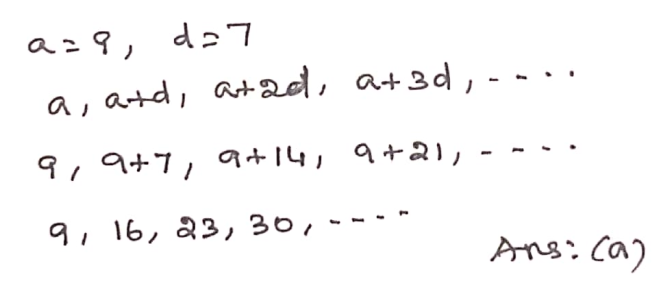 a = 9, d = 7
a, a+d, a+2d, a+3d, ----
9, 9+7, 9+14, 9+21, ----
9, 16, 23, 30, ----
Ans: (a)